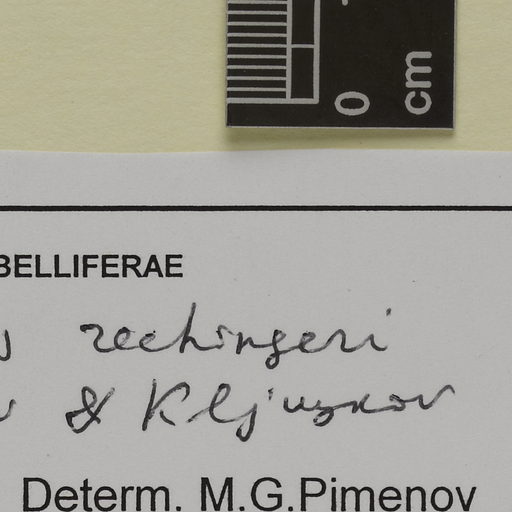 0 cm
BELLIFERAE
rechingeri
& Kljuykov
Determ. M.G.Pimenov